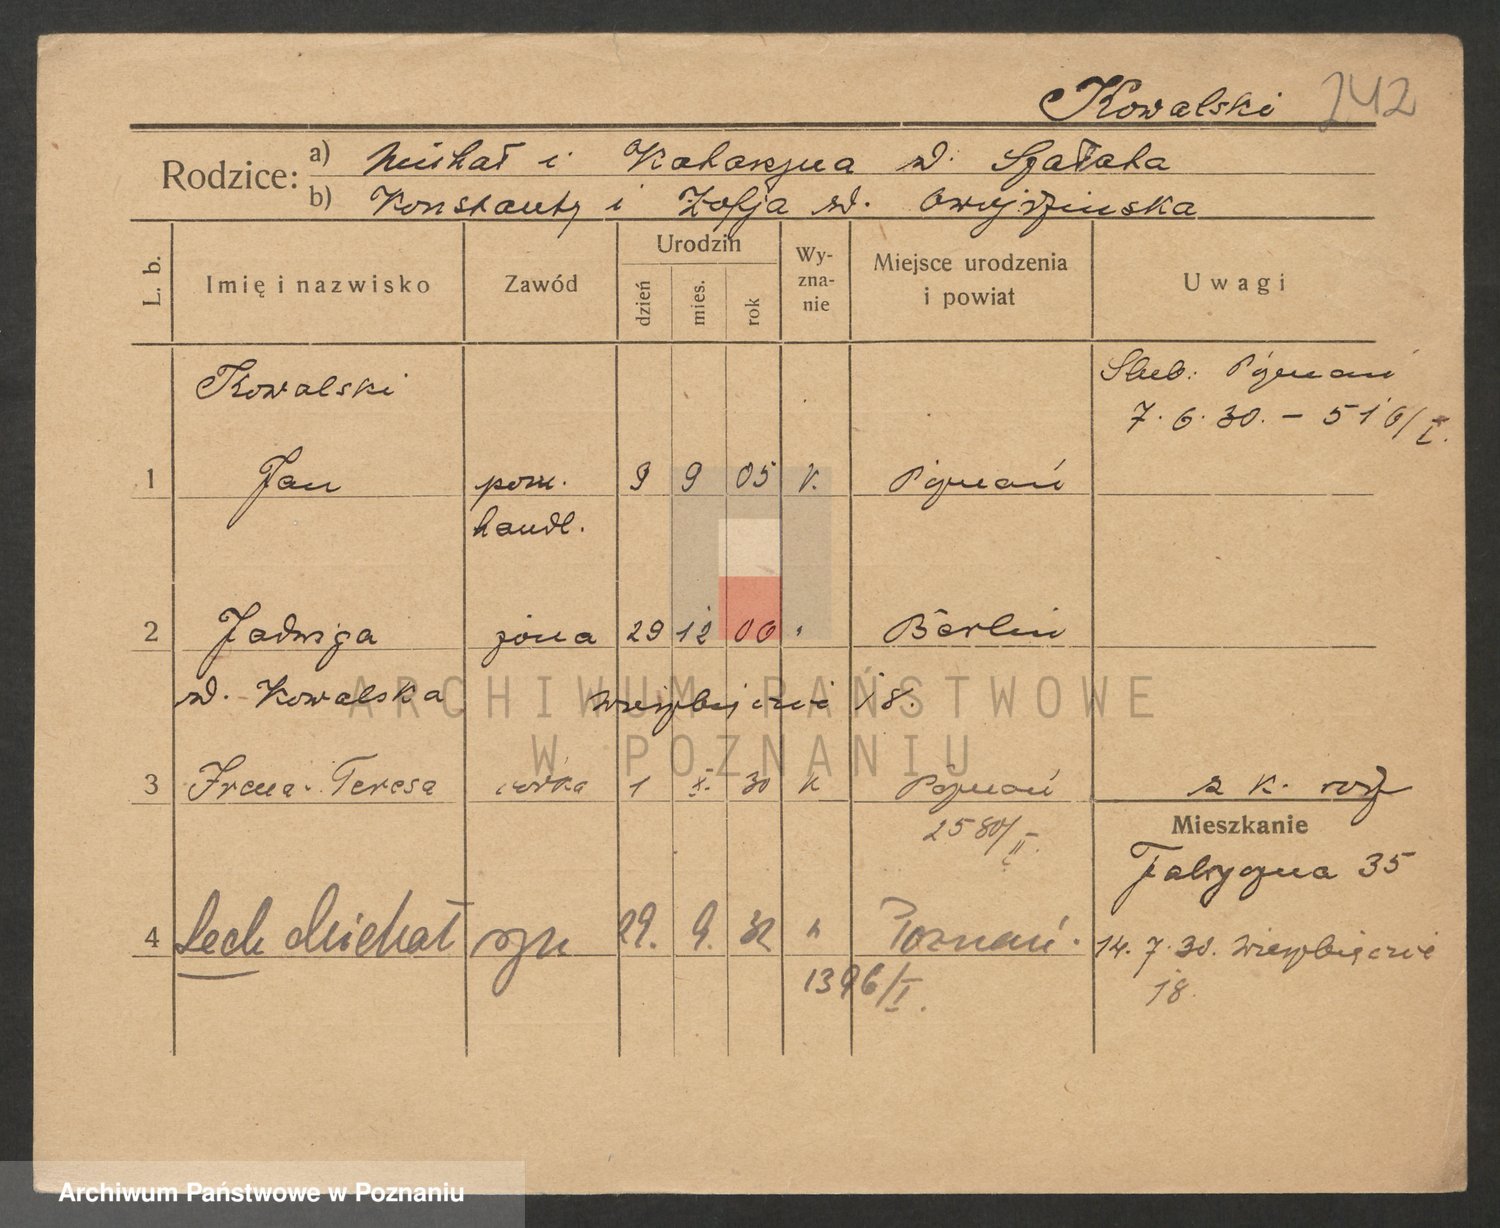 Kowalski 242
Rodzice: a) Michał i Katarzyna d. Szałata
b) Konstanty i Zofja d.
L. b. Imię i nazwisko Zawód Urodzin dzień mies. rok Wy-zna-nie Miejsce urodzenia i powiat Uwagi
Kowalski Ślub: Poznań
7.6.30. – 516/I.
1 Jan pom. 9 9 05 k. Poznań
handl.
2 Jadwiga żona 29 12 06 " Berlin
d. Kowalska Wierzbięcice 18.
3 Irena Teresa córka 1 X. 30 k Poznań z k. rodz
2580/II. Mieszkanie
Fabryczna 35
4 Lech Michał syn 29. 9. 32 k Poznań. 14.7.30. Wierzbięcice
1396/I. 18.
ARCHIWUM PAŃSTWOWE
W POZNANIU
Archiwum Państwowe w Poznaniu